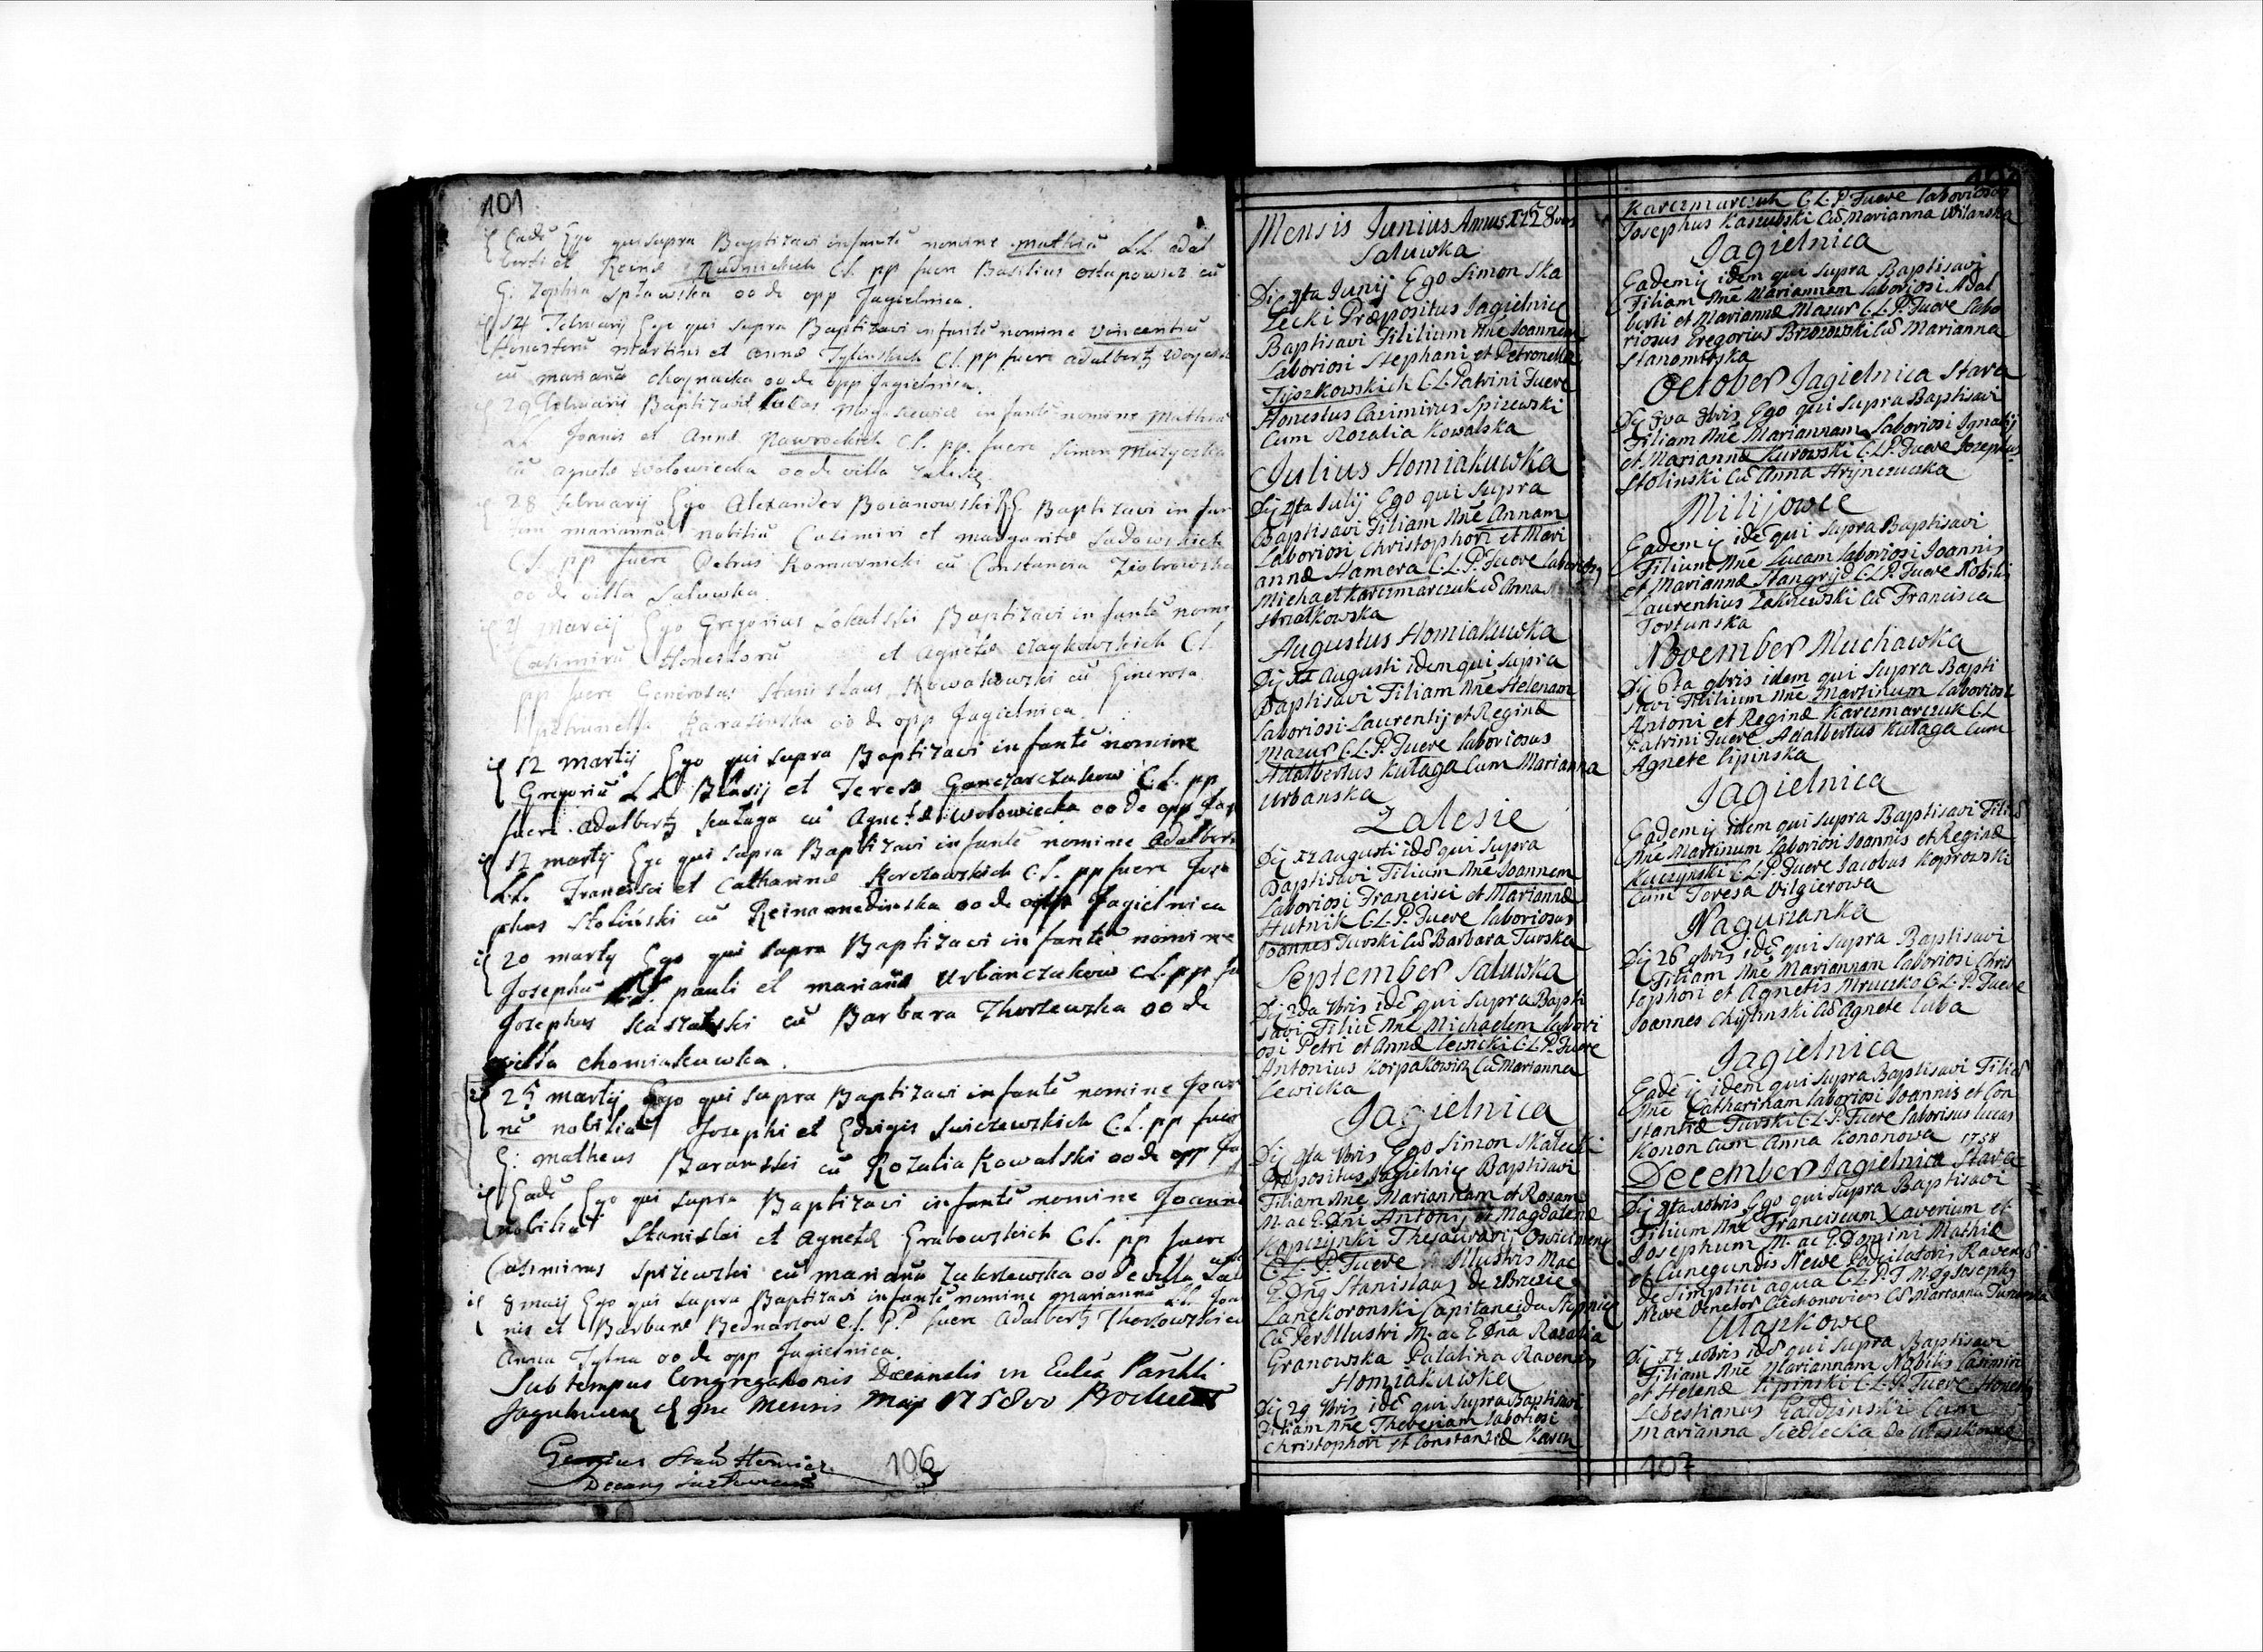 101
Eade Ego qui supra Baptizavi infantē nomine Mathiā LL. Adal
berti et Reinæ Rudnickich C.L. pp fuere Basilius Ostapowicz cū
G: Zophia Spławska oo de opp Jagielnica.
24 Februarij Ego qui supra Baptizavi infantē nomine Vincentiū
Honestorū Martini et Annæ Tylinskich C.L. pp fuere Adalbertꝫ
cū Marianā Choynacka oo de opp Jagielnica.
29 Februarij Baptizavit Lucas infantē nomine Mathiā
LL. Joannis et Annæ Nawrockich C.L. pp. fuere Simon
cū Agnete Wołowiecka oo de villa Zalesie
28 Februarij Ego Alexander Bocianowski Baptizavi infan
tem Mariannā Nobiliū Casimiri et Margaritæ Sadowskich
C.L. pp fuere Petrus Komarnicki cū Constancia Ziobrowska
oo de villa Saluwka
4 Marcij Ego Gregorius Sokalski Baptizavi infantē nomi
Casimirū Honestorū et Agnetæ Czaykowskich C.L.
pp fuere Generosus Stanislaus Nowakowski cū Generosa
Petrunella Karasinska oo de opp Jagielnica
12 Martij Ego qui supra Baptizavi infantē nomine
Gregoriū LL Blasij et Teresæ Garczarczukow C.L. pp
fuere Adalbertꝫ Kułaga cū Agnetæ Wołowiecka oo de opp Jag
12 Martij Ego qui supra Baptizavi infantē nomine Adalber
LL. Francisci et Catharinæ Korczowskich C.L. pp fuere Jose
phus Stoliński cū Reina Medinska oo de Jagielnica
20 Martij Ego qui supra Baptizavi infantē nomine
Josephū LL. Pauli et Mariañæ Urbanczukow C.L. pp fu
Josephus Kaszubski cū Barbara Thorzewska oo de
villa Chomiakuwka.
25 Martij Ego qui supra Baptizavi infantē nomine Joan
nē nobiliū Josephi et Edvigis Swiczewskich C.L. pp fuer
G: Matheus Baranski cū Rozalia Kowalski oo de opp Ja
Eadē Ego qui supra Baptizavi infantē nomine Joanne
nobiliū Stanislai et Agnetæ Grabowskich C.L. pp fuere
Casimirus Spizewski cū Marianā Zakrzewska oo de villa Sal
8 Maij Ego qui supra Baptizavi infantē nomine Mariannā LL. Joan
nis et Barbaræ Bednarzow C.L. P.P fuere Adalbertꝫ Thorzowski cū
Anna Tylna oo de opp Jagielnica.
Sub tempus Congregationis Decanalis in Ecclia Parchli
Jagielnicen die Mensis Maij 1758
Decanus
106
Mensis Junius Annus 1758vus
Saluwka
Dij 4ta Junij Ego Simon Ska
lecki Præpositus Jagielnicē
Baptisavi Fililium Nñe Joannem
Laboriosi Stephani et Petronellæ
Tyszkowskich C.L. Patrini Fuere
Honestus Casimirus Spizewski
Cum Rozalia Kowalska
Julius Homiakuwka
Dij 4ta Julij Ego qui Supra
Baptisavi Filiam Nñe Annam
Laboriosi Christophori et Mari
annæ Hamera C.L.P. Fuere Laboriosꝫ
Michael Karczmarczuk cū Anna
Striałkowska
Augustus Homiakuwka
Dij 11 Augusti idem qui Supra
Baptisavi Filiam Nñe Helenam
Laboriosi Laurentij et Reginæ
Mazur C.L.P. Fuere Laboriosus
Adalbertus Kułaga Cum Marianna
Urbanska
Zalesie
Dij 12 Augusti idē qui Supra
Baptisavi Filium Nñe Joannem
Laboriosi Francisci et Mariannæ
Hutnik C.L.P. Fuere Laboriosus
Joannes Turski Cū Barbara Turska
September Saluwka
Dij 2da 7bris idē qui Supra Bapti
savi Filiū Nñe Michaelem Labori
osi Petri et Annæ Lewicki C.L.P. Fuere
Antonius Korpakowicz Cū Marianna
Lewicka
Jagielnica
Dij 4ta 7bris Ego Simon Skałecki
Præpositus Jagielnicē Baptisavi
Filiam Nñe Mariannam et Rosam
M. ac G. Dñi Antonij et Magdalenæ
Kopczynski Thesaurarij Oswiecimenꝫ
C.L.P. Fuere Illustris Mac
G. Dñs Stanislaus de Brzezie
Lanckoronski Capitaneida Stopnicē
Cū PerIllustri M. ac G. Dña Rozalia
Granowska Palatina Ravensi
Homiakuwka
Dij 29 7bris idē qui Supra Baptisavi
Filiam Nñe Theresiam Laboriosi
Christophori et Constantiæ Karcz
Karczmarczuk C.L.P. Fuere Laboriosꝫ
Josephus Kaszubski Cū Marianna Wilanska
Jagielnica
Eadem ij idem qui Supra Baptisavi
Filiam Nñe Mariannam Laboriosi Adal
berti et Mariannæ Mazur C.L.P. Fuere Labo
riosus Gregorius Brzozowski Cū Marianna
Stanomirska
October Jagielnica Stara
Dij 8va 8bris Ego qui Supra Baptisavi
Filiam Nñe Mariannam Laboriosi Ignatij
et Mariannæ Kurowski C.L.P. Fuere Josephus
Stolinski Cū Anna Hrynczucska
Milijowce
Eadem ij idē qui Supra Baptisavi
Filium Nñe Lucam Laboriosi Joannis
et Mariannæ Stangryd C.L.P. Fuere Nobilis
Laurentius Zakrzewski Cū Francisca
Fortunska
November Muchawka
Dij 6ta 9bris idem qui Supra Bapti
savi Fililium Nñe Martinum Laboriosi
Antoni et Reginæ Karczmarczuk C.L
Patrini Fuere Adalbertus Kułaga Cum
Agnete Lipinska
Jagielnica
Eadem ij idem qui Supra Baptisavi Filiū
Nñe Martinum Laboriosi Joannis et Reginæ
Kuczynski C.L.P. Fuere Jacobus Koprowski
Cum Teresa Wilgierowa
Nagurzanka
Dij 26 9bris idē qui Supra Baptisavi
Filiam Nñe Mariannam Laboriosi Chris
tophori et Agnetis Mruczko C.L.P. Fuere
Joannes Chylinski Cū Agnete Luba
Jagielnica
Eadē ij idem qui Supra Baptisavi Filiā
Nñe Catharinam Laboriosi Joannis et Con
stantiæ Turski C.L.P. Fuere Laborisus Lucas
Konon Cum Anna Kononowa 1758
December Jagielnica Stara
Dij 4ta 10bris Ego qui Supra Baptisavi
Filium Nñe Franciscum Xaverium et
Josephum M. ac G. Domini Mathiæ
et Cunegundis Newe Pocilatoris Ravensē
de Simplici aqua C.L.P.F. M. Dꝫ Josephꝫ
Newe Venator Ciechanovien Cū Marianna
Ułaszkowce
Dij 12 10bris idē qui Supra Baptisavi
Filiam Nñe Mariannam Nobilis Casimiri
et Helenæ Lipinski C.L.P. Fuere Honestꝫ
Sebestianus Gałdzinski Cum
Marianna Siedlecka de Ułaszkowce
107